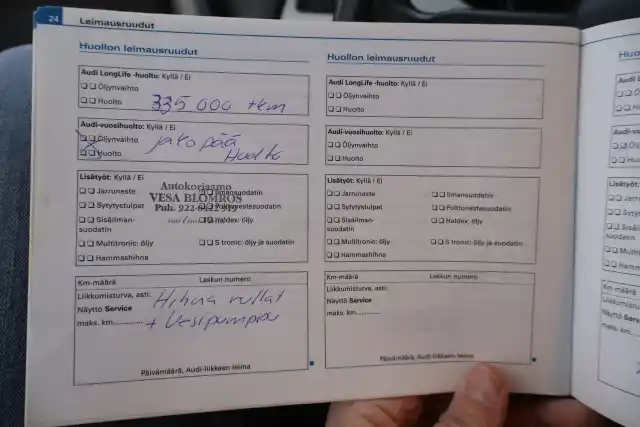 24
Leimausruudut
Huollon leimausruudut
Audi LongLife -huolto: Kyllä / Ei
Öljynvaihto
Huolto
335 000 tkm
Audi-vuosihuolto: Kyllä / Ei
Öljynvaihto
Huolto
jakopää
Huolto
Lisätyöt: Kyllä / Ei
Jarruneste
Ilmansuodatin
Sytytystulpat
Polttonestesuodatin
Sisäilman-
suodatin
Haldex: öljy
Multitronic: öljy
S tronic: öljy ja suodatin
Hammashihna
Autokorjaamo
VESA BLOMROS
Puh.
Km-määrä
Laskun numero
Liikkumisturva, asti:
Näyttö Service
maks. km.............
Hihna rullat
+ Vesipumppu
Päivämäärä, Audi-liikkeen leima
Huollon leimausruudut
Audi LongLife -huolto: Kyllä / Ei
Öljynvaihto
Huolto
Audi-vuosihuolto: Kyllä / Ei
Öljynvaihto
Huolto
Lisätyöt: Kyllä / Ei
Jarruneste
Ilmansuodatin
Sytytystulpat
Polttonestesuodatin
Sisäilman-
suodatin
Haldex: öljy
Multitronic: öljy
S tronic: öljy ja suodatin
Hammashihna
Km-määrä
Laskun numero
Liikkumisturva, asti:
Näyttö Service
maks. km.............
Päivämäärä, Audi-liikkeen leima